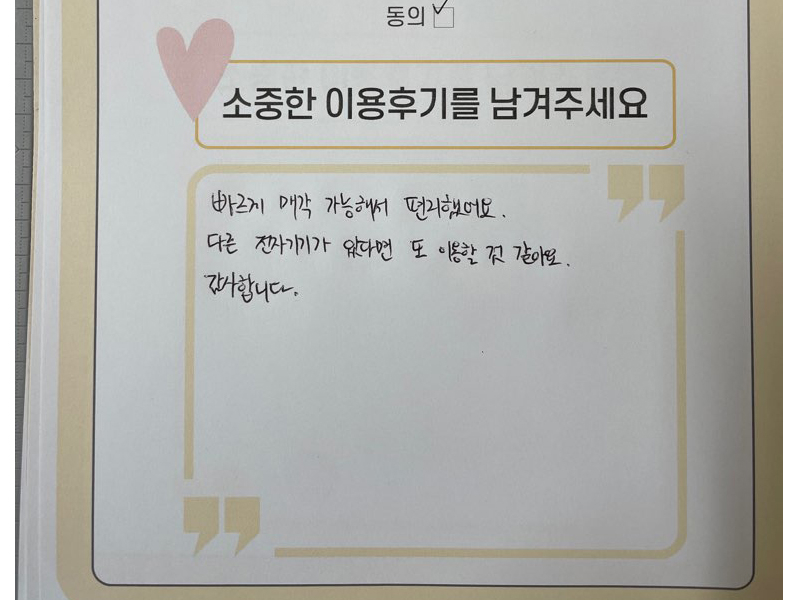 동의
소중한 이용후기를 남겨주세요
빠르게 매각 가능해서 편리했어요.
다른 전자기기가 있다면 또 이용할 것 같아요.
감사합니다.